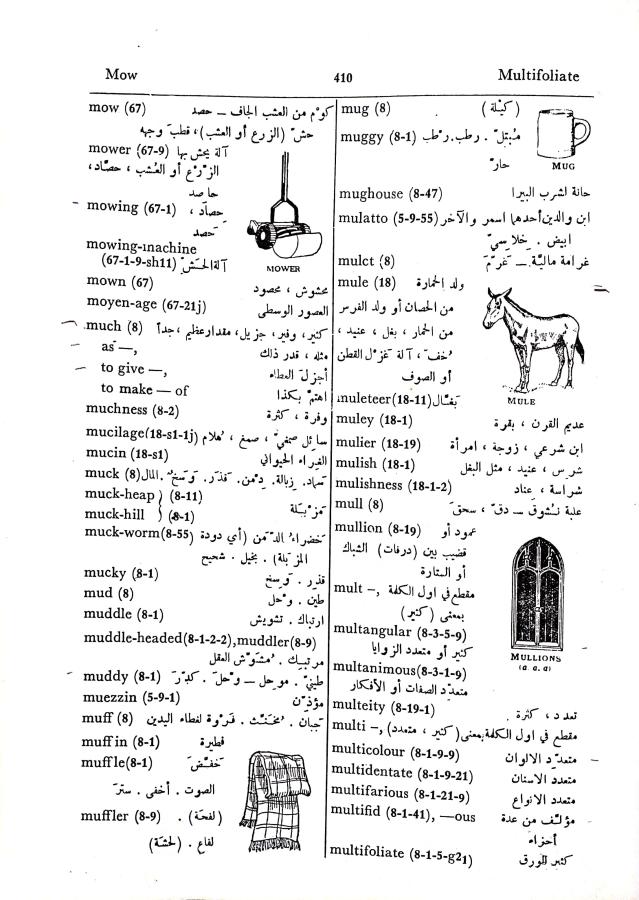 Mow 410 Multifoliate
mow (67) كوم من العشب الجاف – حصد
حش (الزرع أو العشب)، قطب وجهه
mower (67-9) آلة يحش بها
الزرع أو العشب ، حصّاد،
حاصد
mowing (67-1) حصاد ،
حصد
mowing-machine
(67-1-9-sh11) آلة الحش
MOWER
mown (67) محشوش ، محصود
moyen-age (67-21j) العصور الوسطى
much (8) كثير، وفير، جزيل، مقدار عظيم، جداً
as —, مثله ، قدر ذلك
to give —, أجزل العطاء
to make — of اهتم بكذا
muchness (8-2) وفرة ، كثرة
mucilage(18-s1-1j) سائل صمغي ، صمغ ، هلام
mucin (18-s1) الغراء الحيواني
muck (8) سماد. زبالة. دمن. قذر. وسخ. المال
muck-heap } (8-11)
muck-hill } (8-1) مزبلة
muck-worm(8-55) خضراء الدمن (أي دودة
المزبلة) . بخيل . شحيح
mucky (8-1) قذر . وسخ
mud (8) طين . وحل
muddle (8-1) ارتباك . تشويش
muddle-headed(8-1-2-2),muddler(8-9)
مرتبك . مشوش العقل
muddy (8-1) طيني . موحل – وحل . كدر
muezzin (5-9-1) مؤذن
muff (8) جبان . مخنث . فروة لغطاء اليدين
muffin (8-1) فطيرة
muffle(8-1) خفض
الصوت . أخفى . ستر
muffler (8-9) (لفحة) .
لفاع . (لحشة)
mug (8) (كيلة)
muggy (8-1) مبتل . رطب. رطب
حار
MUG
mughouse (8-47) حانة لشرب البيرا
mulatto (5-9-55) ابن والدين أحدهما اسمر والآخر
ابيض . خلاسي
mulct (8) غرامة مالية – غرم
mule (18) ولد الحمارة
من الحصان أو ولد الفرس
من الحمار ، بغل ، عنيد ،
خف ، آلة غزل القطن
أو الصوف
MULE
muleteer(18-11) بغّال
muley (18-1) عديم القرن ، بقرة
mulier (18-19) ابن شرعي ، زوجة ، امرأة
mulish (18-1) شرس ، عنيد ، مثل البغل
mulishness (18-1-2) شراسة ، عناد
mull (8) علبة نشوق – دق ، سحق
mullion (8-19) عمود أو
قضيب بين (درفات) الشباك
أو الستارة
mult –, مقطع في اول الكلمة
بمعنى (كثير)
multangular (8-3-5-9)
كثير أو متعدد الزوايا
MULLIONS
(a. a. a)
multanimous(8-3-1-9)
متعدد الصفات أو الأفكار
multeity (8-19-1) تعدد ، كثرة
multi –, مقطع في اول الكلمة بمعنى (كثير ، متعدد)
multicolour (8-1-9-9) متعدد الالوان
multidentate (8-1-9-21) متعدد الاسنان
multifarious (8-1-21-9) متعدد الانواع
multifid (8-1-41), —ous مؤلف من عدة
أجزاء
multifoliate (8-1-5-g21) كثير الورق